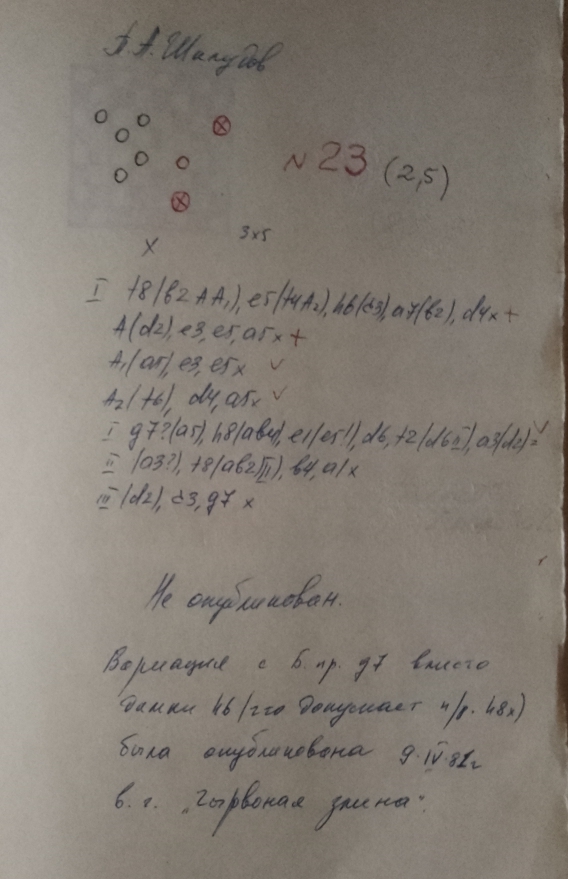 П.А. Шклудов
N 23 (2,5)
3x5
X
I f8(b2 A A₁), e5(f4A₂), h6(c3), a7(b2), d4x+
A(d2), e3, e5, a5x+
A₁(a5), e3, e5x ✓
A₂(f6), d4, a5x ✓
I g7?(a5), h8(ab4), e1(e5!), d6, f2(d6II), a3(d2)= ✓
II (a3?), f8(ab2III), b4, a1x
III (d2), c3, g7x
Не опубликован.
Вариация с Б. пр. g7 вместо
дамки h6 (что допускает п/р. h8x)
была опубликована 9.IV.82г
в г. „Чырвоная змена".